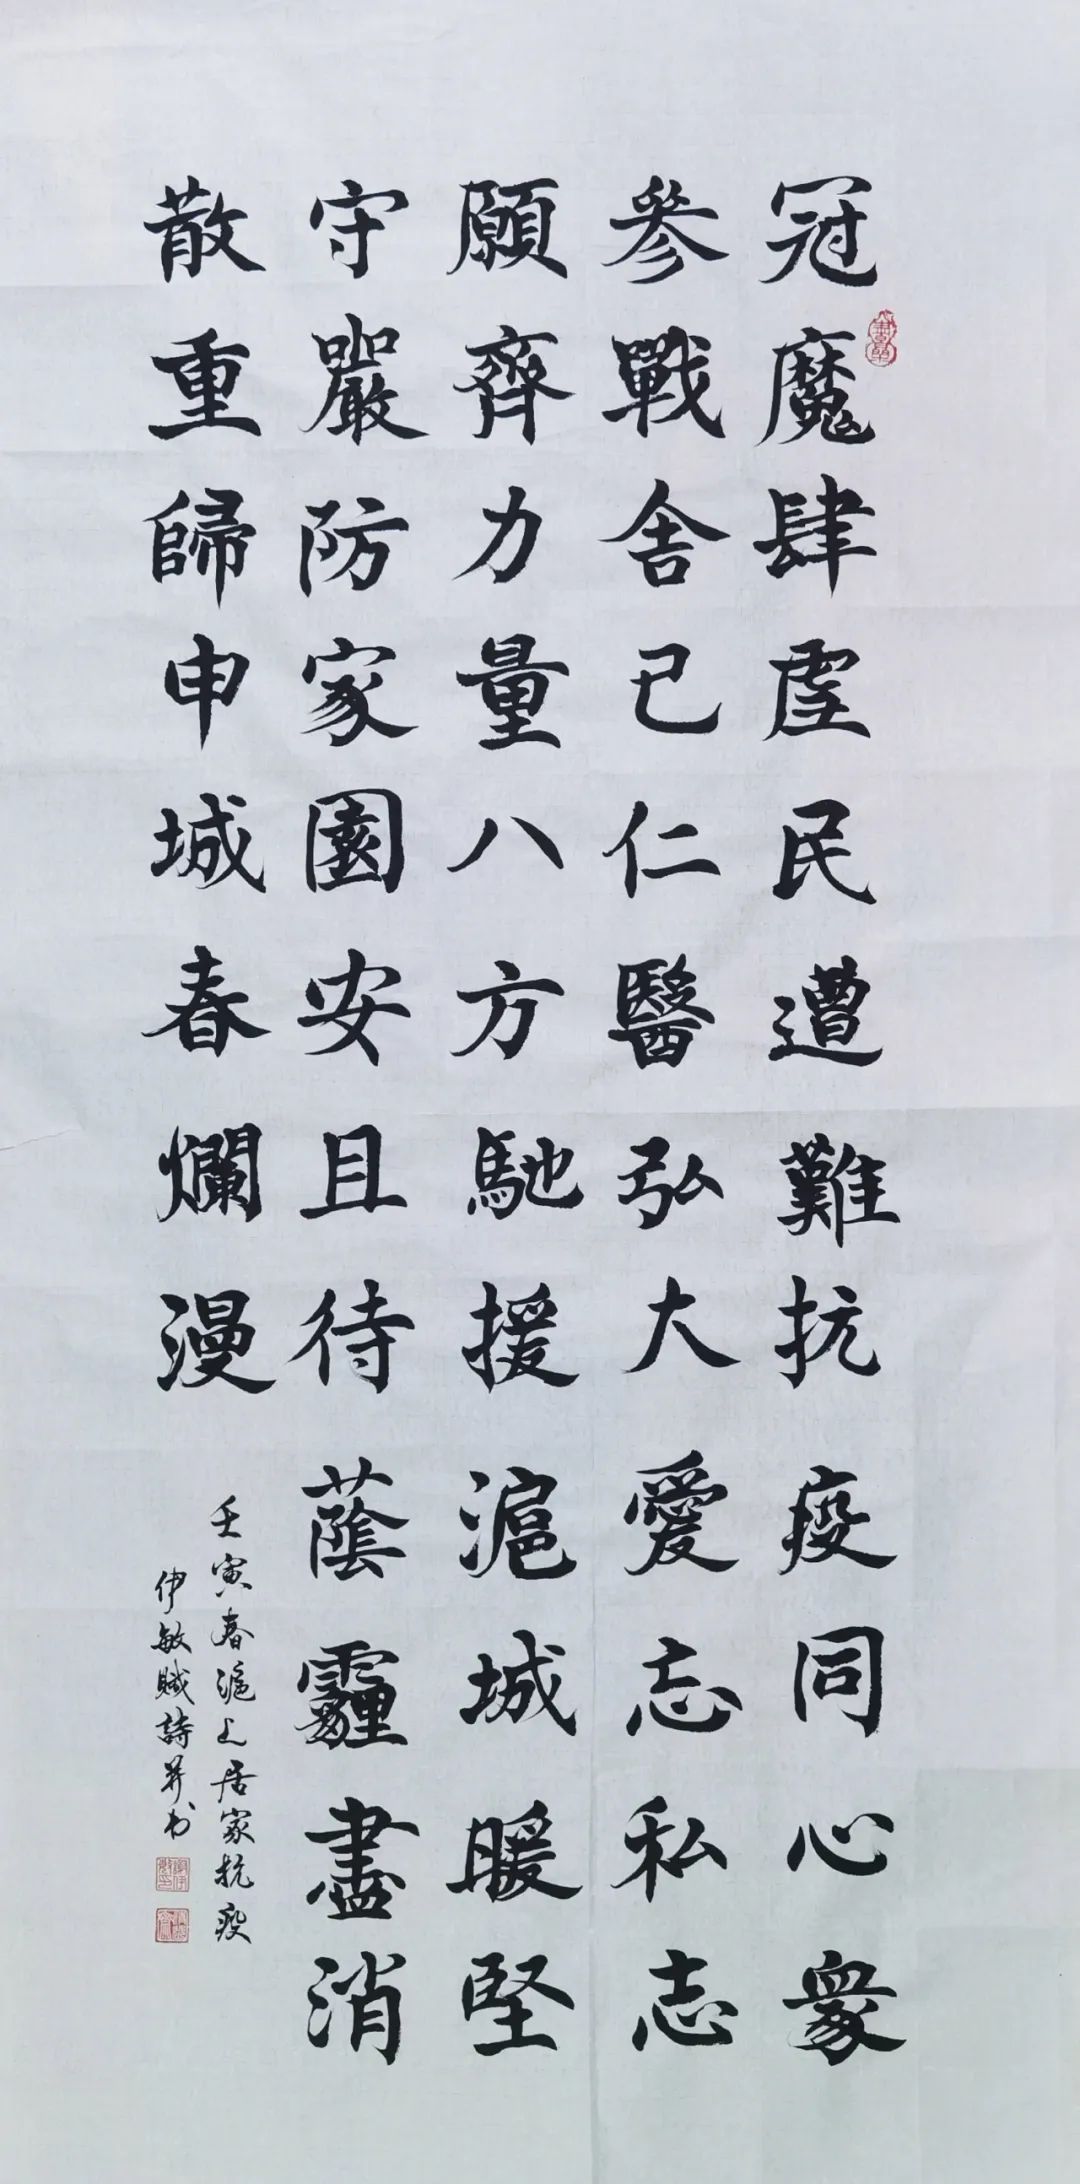 冠魔肆虐民遭難抗疫同心衆
參戰舍已仁醫弘大愛忘私志
願齊力量八方馳援滬城暖堅
守嚴防家園安且待蔭霾盡消
散重歸申城春爛漫
壬寅春滬上居家抗疫
伊敏賦詩并书